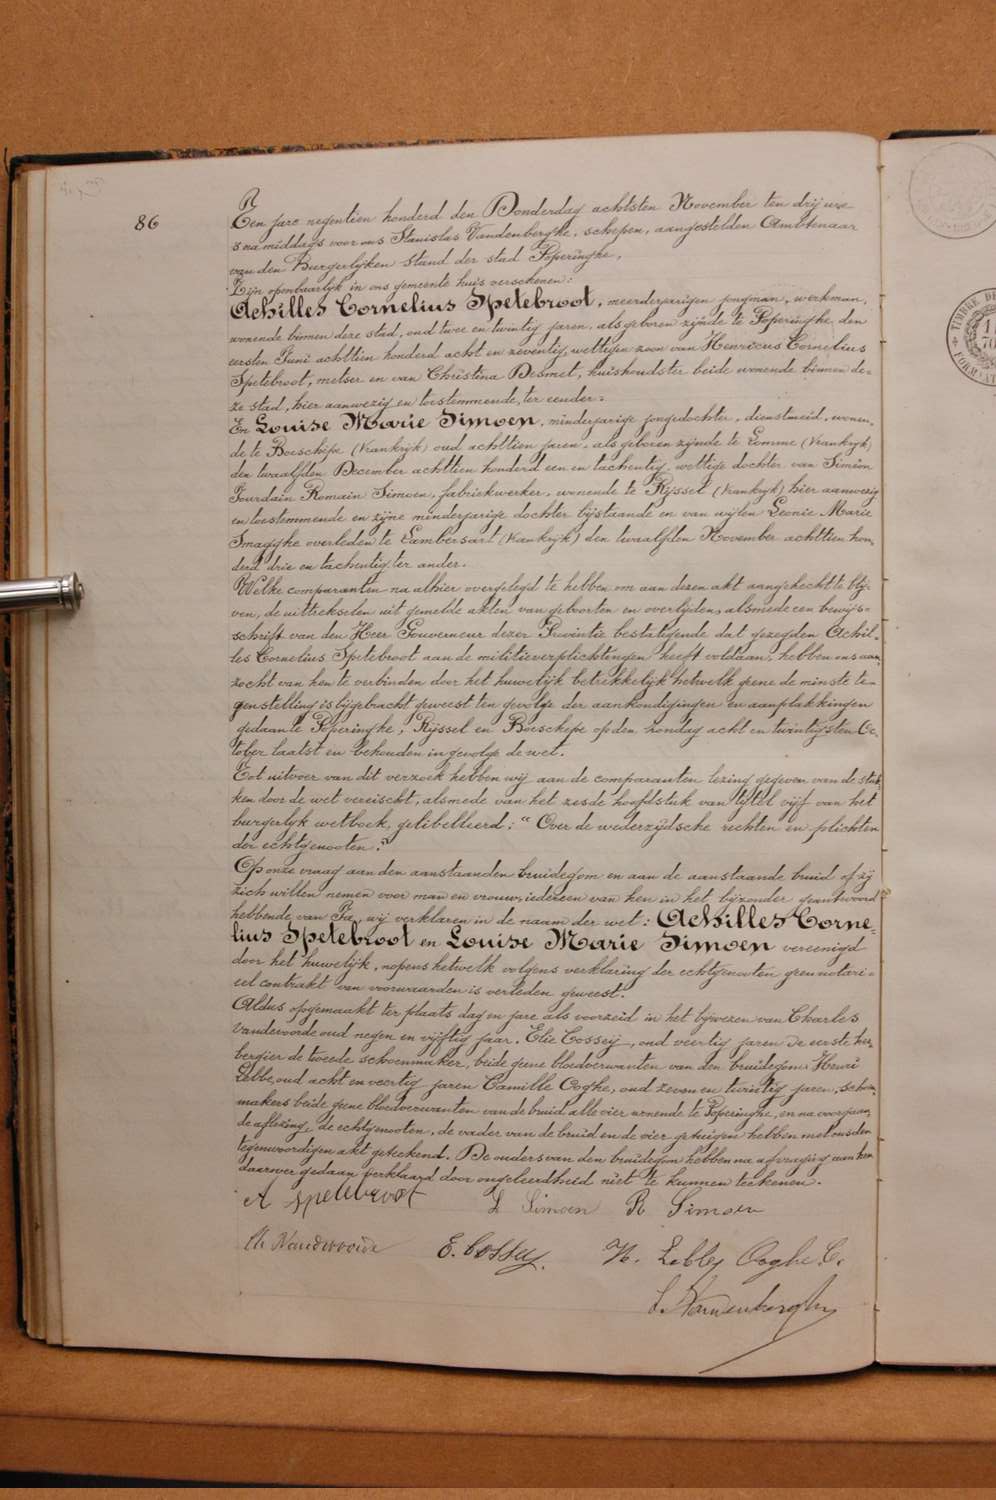 86
Een jare negentien honderd den Donderdag achtsten November ten drij ure
s namiddags voor ons Stanislas Vandenberghe, schepen, aangestelden Ambtenaar
van den Burgerlijken Stand der stad Poperinghe,
Zijn openbaarlijk in ons gemeente huis verschenen:
Achilles Cornelius Spetebroot, meerderjarigen jongman, werkman,
wonende binnen deze stad, oud twee en twintig jaren, als geboren zijnde te Poperinghe den
eersten Juni achttien honderd acht en zeventig, wettigen zoon van Henricus Cornelius
Spetebroot, metser en van Christina Desmet, huishoudster beide wonende binnen de-
ze stad, hier aanwezig en toestemmende, ter eender:
En Louise Marie Simoen, minderjarige jongedochter, dienstmeid, wonen-
de te Boeschepe (Vrankrijk) oud achttien jaren, als geboren zijnde te Lomme (Vrankrijk)
den twaalfden December achttien honderd een en tachentig, wettige dochter van Siméon
Jourdain Romain Simoen, fabriekwerker, wonende te Rijssel (Vrankrijk) hier aanwezig
en toestemmende en zijne minderjarige dochter bijstaande en van wijlen Leonie Marie
Smagghe overleden te Lambersart (Vrankrijk) den twaalfden November achttien hon-
derd drie en tachentig, ter ander.
Welke comparanten na alhier overgelegd te hebben om aan dezen akt aangehecht te blij-
ven, de uittrekselen uit gemelde akten van geboorten en overlijden, alsmede een bewijs-
schrift van den Heer Gouverneur dezer Provintie bestatigende dat gezegden Achil-
les Cornelius Spetebroot aan de militieverplichtingen heeft voldaan, hebben ons aan-
zocht van hen te verbinden door het huwelijk betrekkelijk hetwelk geene de minste te-
genstelling is bijgebracht geweest ten gevolge der aankondigingen en aanplakkingen
gedaan te Poperinghe, Rijssel en Boeschepe op den zondag acht en twintigsten Oc-
tober laatst en behouden in gevolge de wet.
Tot uitvoer van dit verzoek hebben wij aan de comparanten lezing gegeven van de stuk-
ken door de wet vereischt, alsmede van het zesde hoofdstuk van tijtel vijf van het
burgerlijk wetboek, gelibellierd: "Over de wederzijdsche rechten en plichten
der echtgenooten."
Op onze vraag aan den aanstaanden bruidegom en aan de aanstaande bruid of zij
zich willen nemen voor man en vrouw, iedereen van hen in het bijzonder geantwoord
hebbende van Ja, wij verklaren in de naam der wet: Achilles Corne-
lius Spetebroot en Louise Marie Simoen vereenigd
door het huwelijk, nopens hetwelk volgens verklaring der echtgenooten geen notari-
eel contrakt van voorwaarden is verleden geweest.
Aldus opgemaakt ter plaats dag en jare als voorzeid in het bijwezen van Charles
Vandevoorde oud negen en vijftig jaar, Elie Cossey, oud veertig jaren de eerste her-
bergier de tweede schoenmaker, beide geene bloedverwanten van den bruidegom, Henri
Lebbe, oud acht en veertig jaren Camille Ooghe, oud zeven en twintig jaren, schoen-
makers beide geene bloedverwanten van de bruid alle vier wonende te Poperinghe, en na voorgaan-
de aflezing, de echtgenooten, de vader van de bruid en de vier getuigen hebben met ons den
tegenwoordigen akt geteekend. De ouders van den bruidegom hebben na afvraging aan hen
daarover gedaan verklaard door ongeleerdheid niet te kunnen teekenen.
A Spetebroot L Simoen R Simoen
Ch Vandevoorde E. Cossey. H. Lebbe Ooghe C.
S. Vandenberghe
TIMBRE